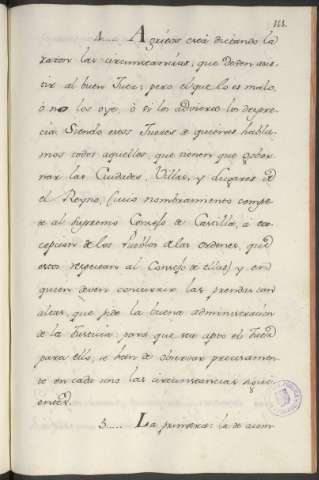 111.
4.... A gritos está dictando la
razon las circunstancias, que deben asis-
tir al buen Juez; pero el que lo es malo,
ó no los oye, ó si los advierte los despre-
cia. Siendo estos Jueces de quienes habla-
mos todos aquellos, que tienen que gober-
nar las Ciudades, Villas, y Lugares de
el Reyno, (cuio nombramiento compe-
te al Supremo Consejo de Castilla, á ex-
cepcion de los Pueblos de las Ordenes, que
estos respectan al Consejo de ellas) y en
quien deven concurrir las prendas tan
altas, que pide la buena administracion
de la Justicia: para que sea apto el Juez
para ello, se hán de observar precisamen-
te en cada uno las circunstancias siguie-
entes.
5.... La primera: la de acom-